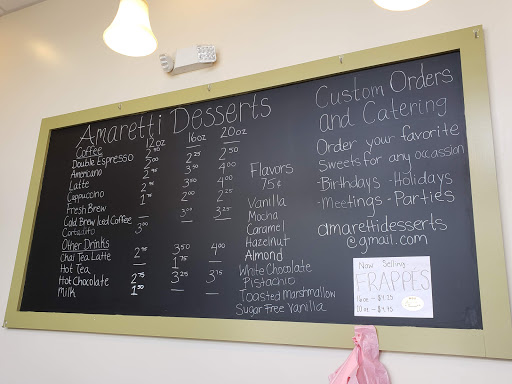 Amaretti Desserts
12oz 16oz 20oz
Coffee
Double Espresso
Americano
Latte
Cappuccino
Fresh Brew
Cold Brew Iced Coffee
Cortadito 3.00
Other Drinks
Chai Tea Latte 2.95 3.50 4.00
Hot Tea — 1.75 —
Hot Chocolate 2.75 3.25 3.75
Milk 1.50 — —
Flavors
75¢
Vanilla
Mocha
Caramel
Hazelnut
Almond
White Chocolate
Pistachio
Toasted Marshmallow
Sugar Free Vanilla
Custom Orders
and Catering
Order your favorite
Sweets for any occassion
-Birthdays -Holidays
-Meetings -Parties
amarettidesserts
@gmail.com
Now Selling
FRAPPES